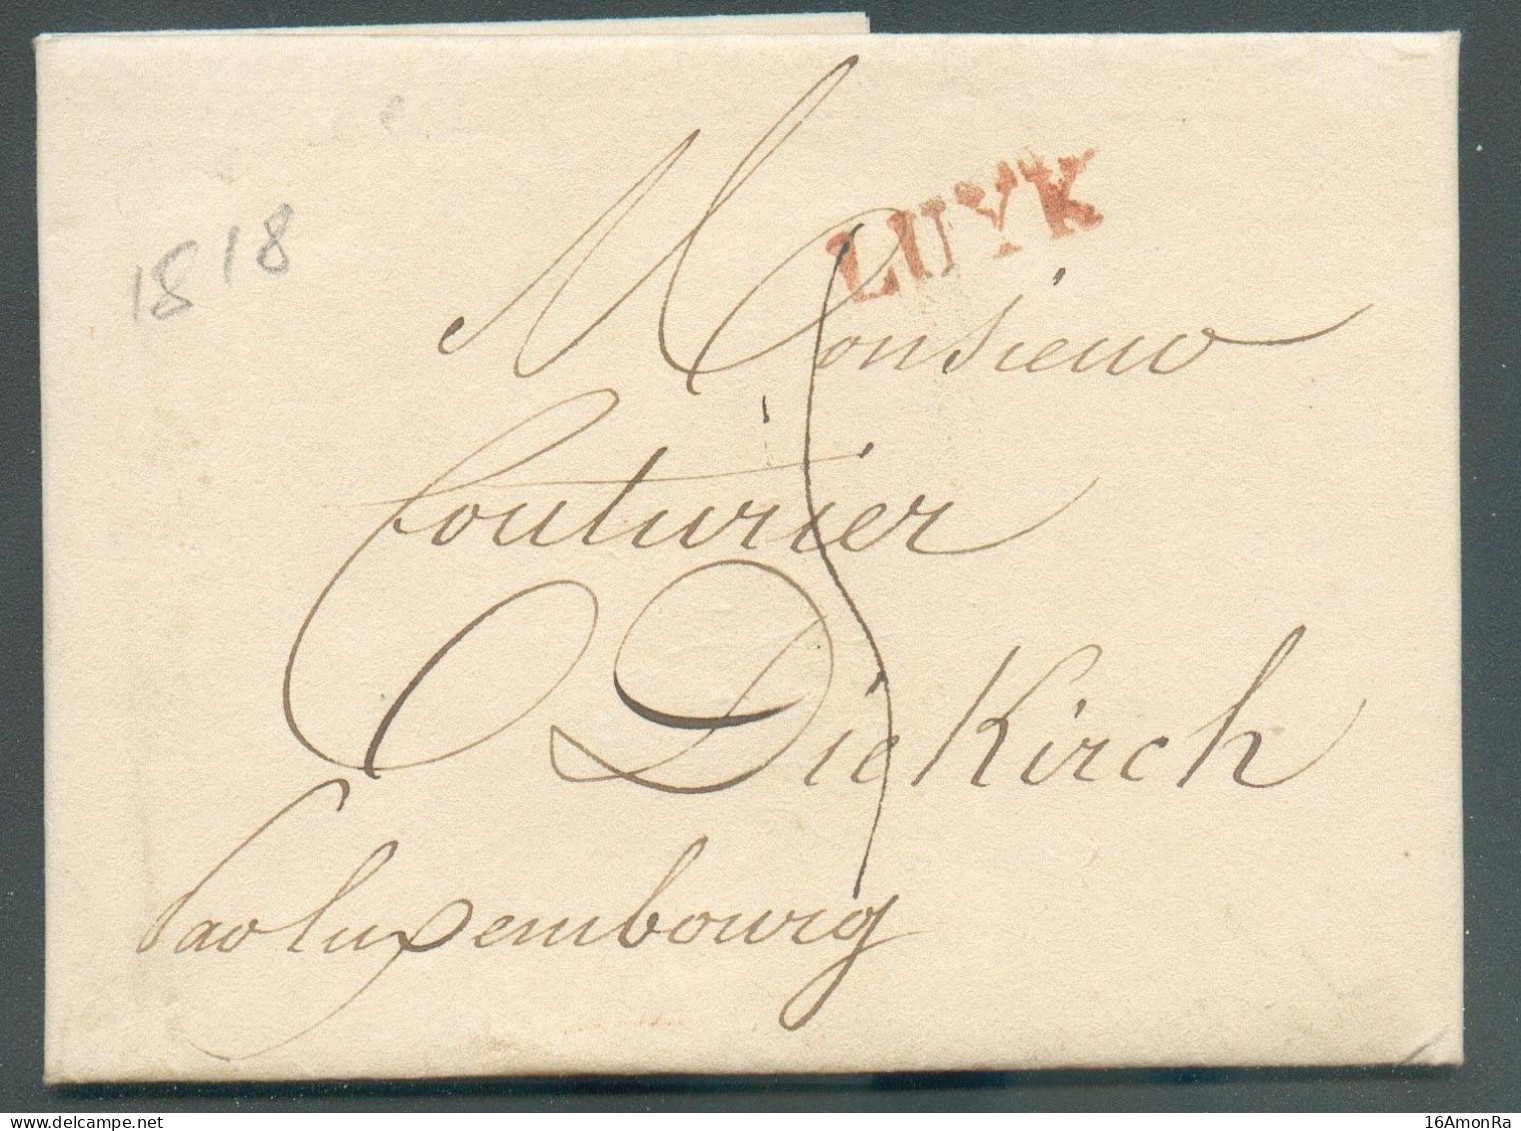 1818
LUYK
Monsieur
Couturier
Diekirch
Par Luxembourg
delcampe.net
16AmonRa